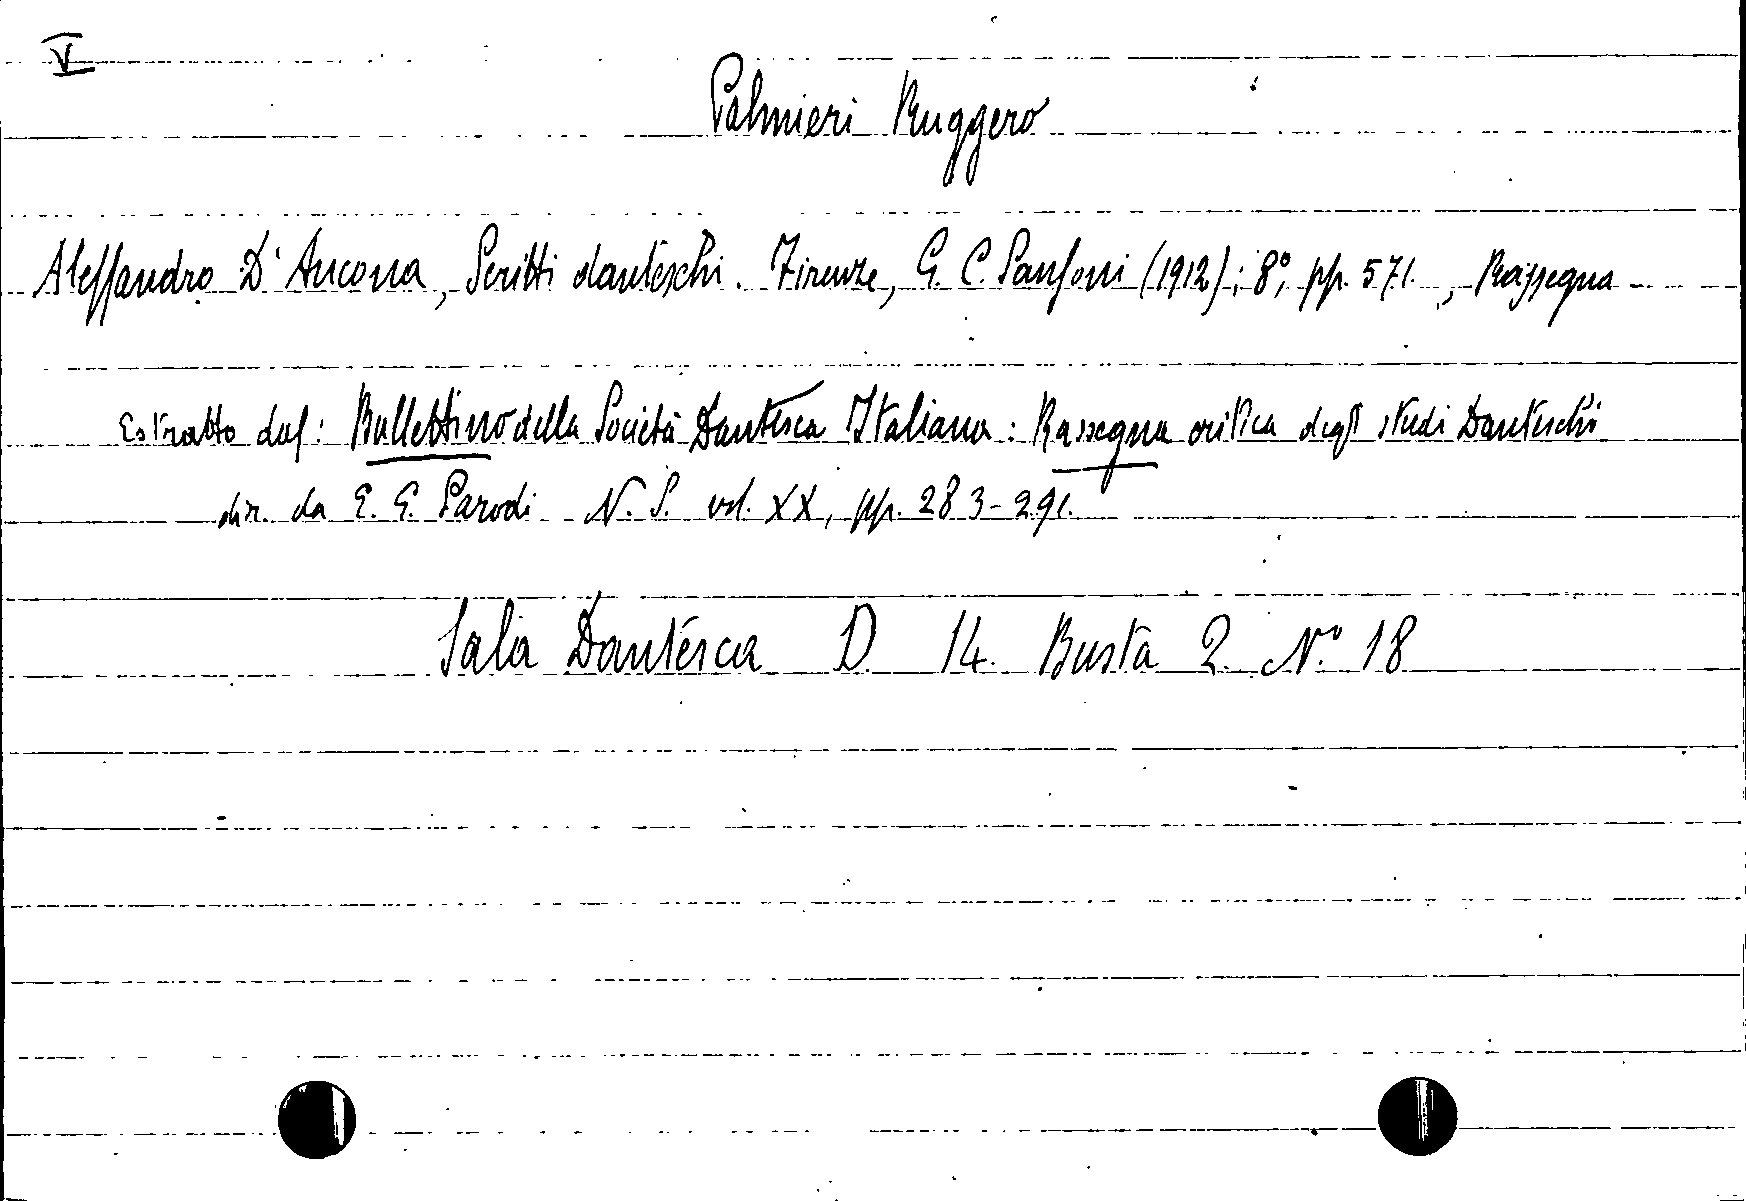 V
Palmieri Ruggero
Alessandro D'Ancona, Scritti danteschi. Firenze, G. C. Sansoni (1912); 8°, pp. 571., Rassegna
Estratto dal: Bullettino della Società Dantesca Italiana: Rassegna critica degli studi Danteschi
dir. da E. G. Parodi N. S. vol. XX, pp. 283-291.
Sala Dantesca D. 14. Busta 2. N.° 18